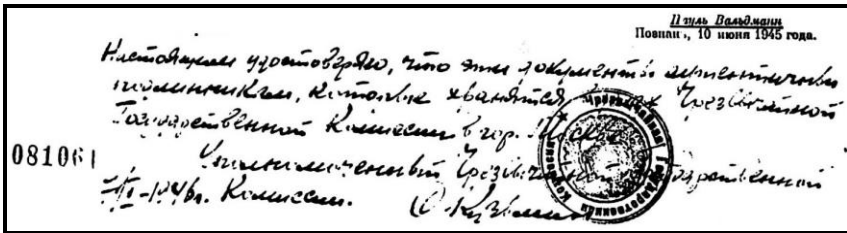 Пауль Вальдманн
Познань, 10 июня 1945 года.
Настоящим удостоверяю, что эти документы аутентичны
подлинникам, которые хранятся Чрезвычайной
Государственной Комиссии в гор. Москва
081061
Уполномоченный Чрезвычайной Государственной
1946г. Комиссии.